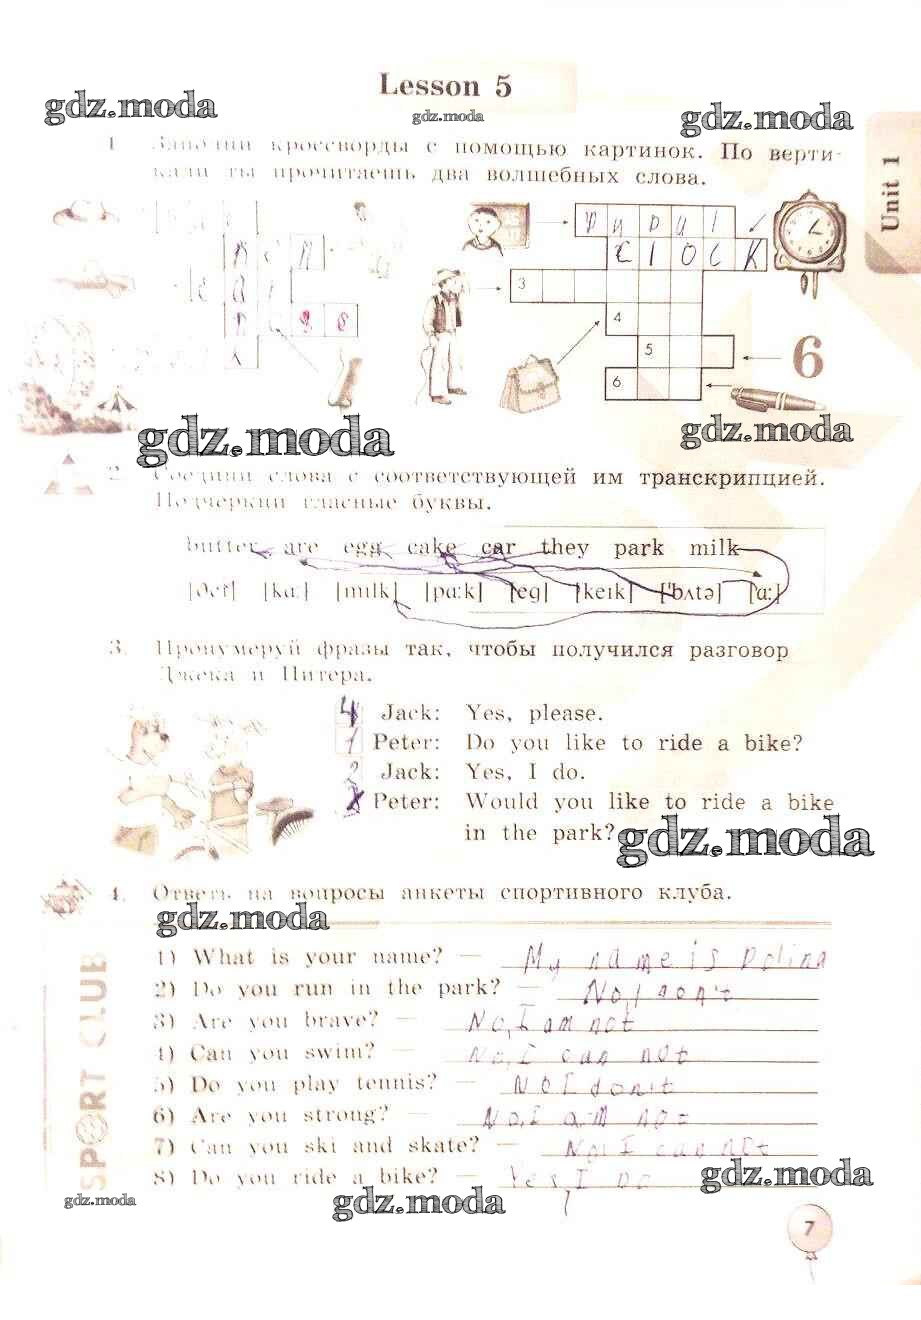 Lesson 5
gdz.moda
gdz.moda
gdz.moda
1 Заполни кроссворды с помощью картинок. По верти-
кали ты прочитаешь два волшебных слова.
Unit 1
pupil
clock
3
4
5
6
6
gdz.moda
gdz.moda
2. Соедини слова с соответствующей им транскрипцией.
Подчеркни гласные буквы.
butter are egg cake car they park milk
[ðeɪ] [kɑ:] [mɪlk] [pɑ:k] [eg] [keɪk] ['bʌtə] [ɑ:]
3. Пронумеруй фразы так, чтобы получился разговор
Джека и Питера.
4 Jack: Yes, please.
1 Peter: Do you like to ride a bike?
2 Jack: Yes, I do.
Peter: Would you like to ride a bike
in the park?
gdz.moda
4. Ответь на вопросы анкеты спортивного клуба.
gdz.moda
SPORT CLUB
1) What is your name? — My name is Polina
2) Do you run in the park? — No, I don't
3) Are you brave? — No, I am not
4) Can you swim? — No, I can not
5) Do you play tennis? — No I don't
6) Are you strong? — No, I am not
7) Can you ski and skate? — No, I can not
8) Do you ride a bike? — Yes, I do
gdz.moda
gdz.moda
gdz.moda
7